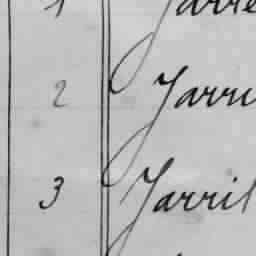 1 Jarre
2 Jarri
3 Jarril